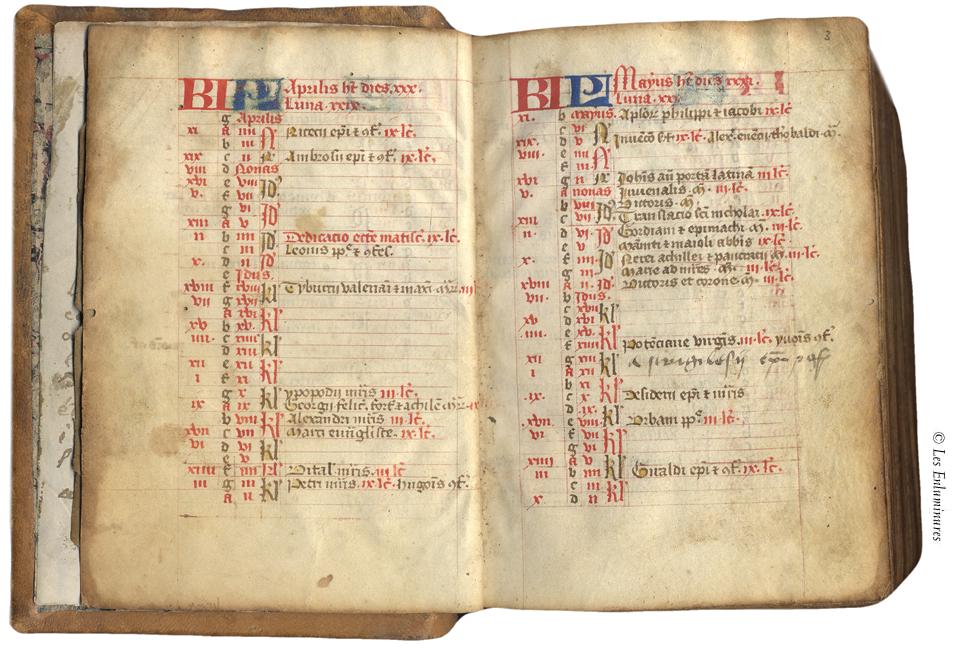 KL Aprilis ht dies xxx.
Luna xxix.
g Aprilis
xi a iiii N Nicecii epi et cf. ix lc.
b iii N
xix c ii N Ambrosii epi et cf. ix lc.
viii d Nonas
xvi e viii Id
v. f vii
g vi Id
xiii a v
ii b iiii Id Dedicatio eccle matisc. ix lc.
c iii Leonis pp et cfes.
x. d ii Id
e Idus.
xviii f xviii kl Tyburcii valeriani et maxi. mr. iii
vii g xvii
a xvi kl
xv b xv.
iiii. c xiiii kl
d xiii
xii e xii kl
i f xi
g x kl ypopodii mris iii lc.
ix a ix Georgii felic. fort. et achile mr. ix
b viii kl Alexandri mris iii lc.
xvii c vii Marci evvgliste. ix lc.
vi d vi kl
e v
xiiii f iiii kl Vital mris. iii lc
iii g iii kl Petri mris. ix lc. hugois cf.
a ii
3
KL Mayus ht dies xxxi.
Luna xxx
xi. b mayus. Aplor philippi et iacobi ix lc
c vi N
xix. d v Invecio s. ix lc. Alex. evecii thobaldi m.
viii. e iiii N
f iii
xvi g ii N Johis an portā latinā iii lc
v. a nonas Juvenalis. m. iii lc.
b viii Id Victoris. m.
xiii c vii Translacio sci nicholai. ix lc
ii. d vi Id Gordiani et epimachi. m. iii lc.
e v Mamti et maioli abbis ix lc.
x. f iiii Id Nerei achillei et pancracii m. iii lc.
g iii Marie ad mres. m. iii lc.
xviii a ii Id Victoris et corone m. iii lc.
vii. b Idus.
c xvii kl
xv d xvi
iiii. e xv. kl
f xiiii Potenciane virgis. iii lc. yvois cf.
xii g xiii kl
i a xii
b xi kl
ix. c x Desiderii epi et mris
d ix. kl
xvii. e viii Urbani pp. iii lc.
vi f vii kl
g vi
xiiii a v kl Guraldi epi et cf. ix lc.
iii b iiii
c iii kl
x. d ii
© Les Enluminures